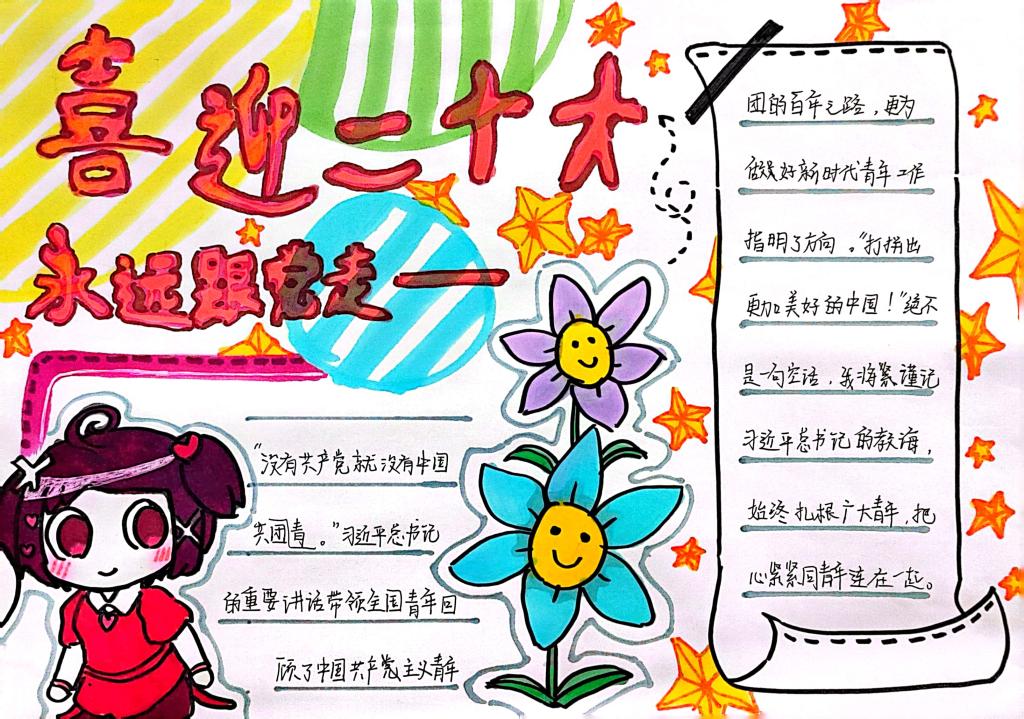 喜迎二十大
永远跟党走一
"没有共产党就没有中国
共团青。"习近平总书记
的重要讲话带领全国青年回
顾了中国共产党主义青年
团的百年之路，更为
做好新时代青年工作
指明了方向。"打拼出
更加美好的中国！"绝不
是一句空话，我将紧谨记
习近平总书记的教诲，
始终扎根广大青年，把
心紧紧同青年连在一起。